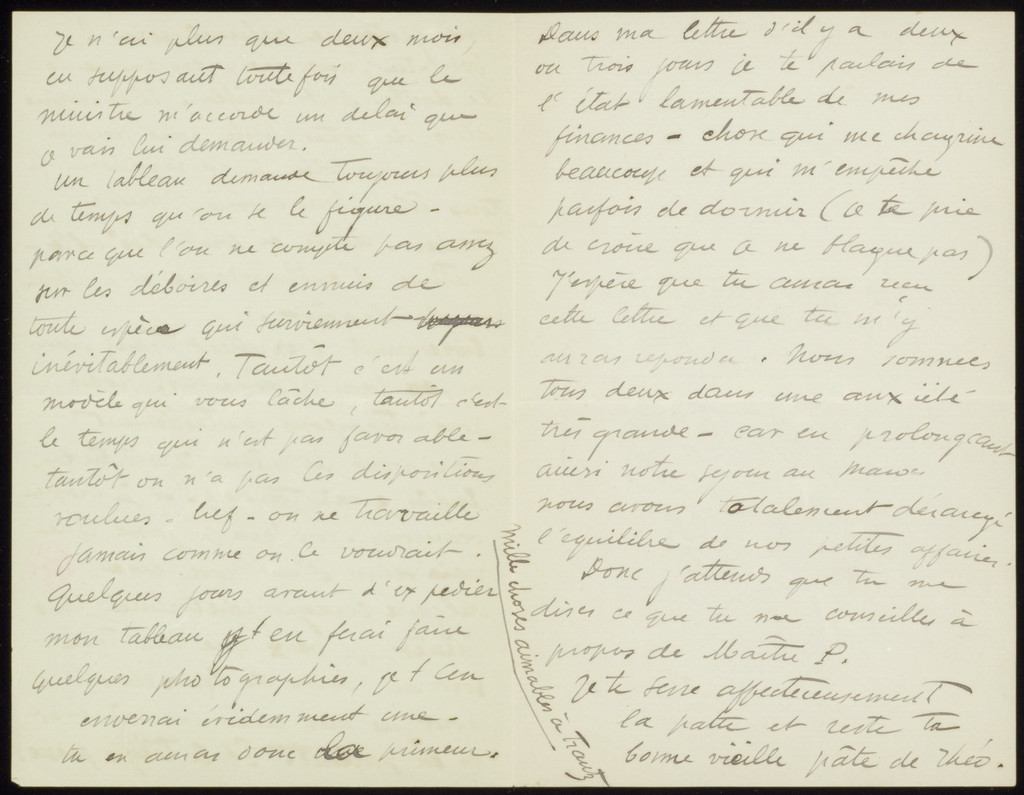 Je n'ai plus que deux mois,
en supposant toutefois que le
ministre m'accorde un delai que
je vais lui demander.
Un tableau demande toujours plus
de temps qu'on se le figure -
parce que l'on ne compte pas assez
sur les déboires et ennuis de
toute espèce qui surviennent
inévitablement. Tantôt c'est un
modèle qui vous lâche, tantôt c'est
le temps qui n'est pas favorable -
tantôt on n'a pas les dispositions
voulues - bref - on ne travaille
jamais comme on le voudrait.
Quelques jours avant d'expedier
mon tableau j'en ferai faire
quelques photographies, je t'en
enverrai évidemment une -
tu en auras donc la primeur.
Dans ma lettre d'il y a deux
ou trois jours je te parlais de
l'état lamentable de mes
finances - chose qui me chagrine
beaucoup et qui m'empêche
parfois de dormir (je te prie
de croire que je ne blague pas)
J'espère que tu auras reçu
cette lettre et que tu m'y
auras repondu. Nous sommes
tous deux dans une anxiété
très grande - car en prolongeant
ainsi notre sejour au Maroc
nous avons totalement dérangé
l'équilibre de nos petites affaires.
Donc j'attends que tu me
dises ce que tu me conseilles à
propos de Maître P.
Je te serre affectueusement
la patte et reste ta
bonne vieille pâte de Théo.
Mille choses aimables à Trautz